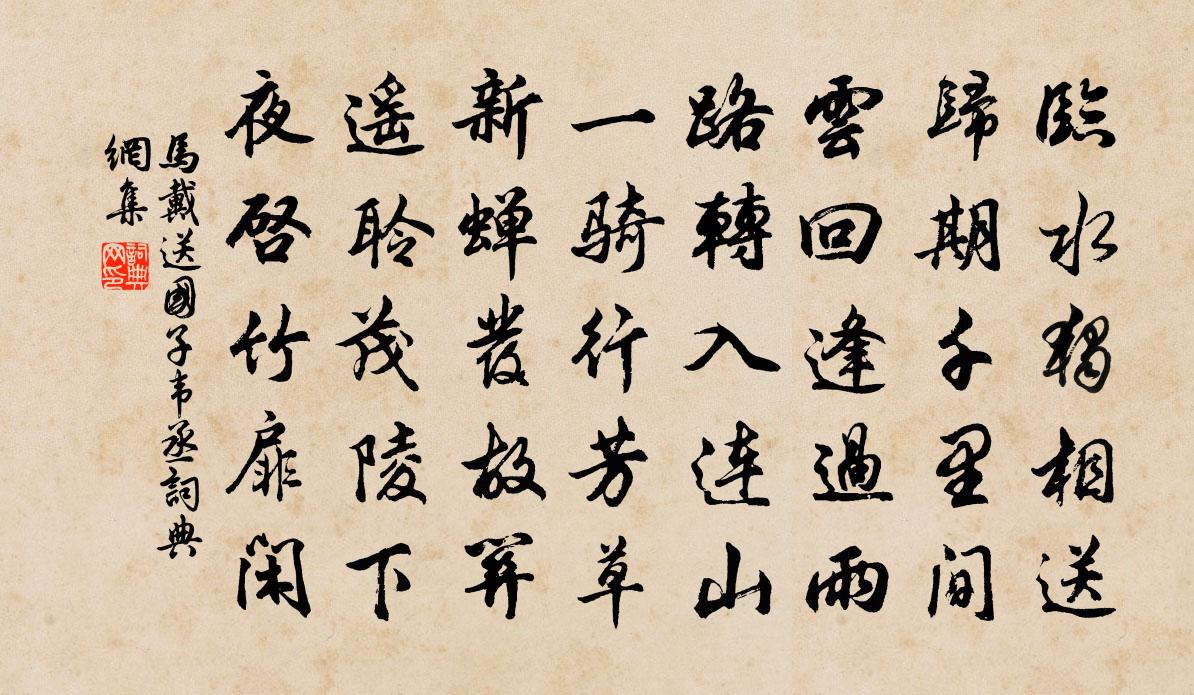 臨水獨相送
歸期千里間
雲回逢過雨
路轉入連山
一騎行芳草
新蟬發故關
遥聆茂陵下
夜啓竹扉閑
馬戴送國子韦丞詞典
網集
詞典
网印